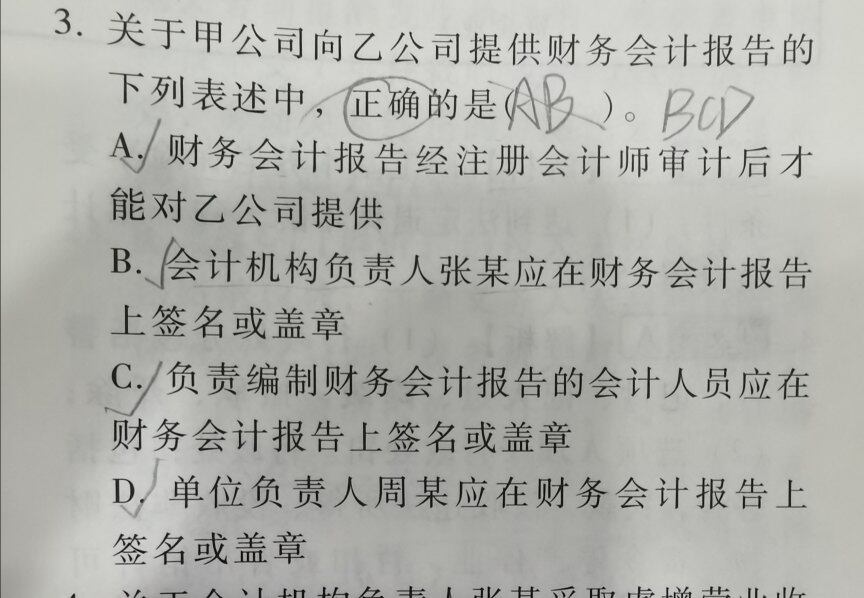 3. 关于甲公司向乙公司提供财务会计报告的
下列表述中，正确的是(AB)。BCD
A. 财务会计报告经注册会计师审计后才
能对乙公司提供
B. 会计机构负责人张某应在财务会计报告
上签名或盖章
C. 负责编制财务会计报告的会计人员应在
财务会计报告上签名或盖章
D. 单位负责人周某应在财务会计报告上
签名或盖章